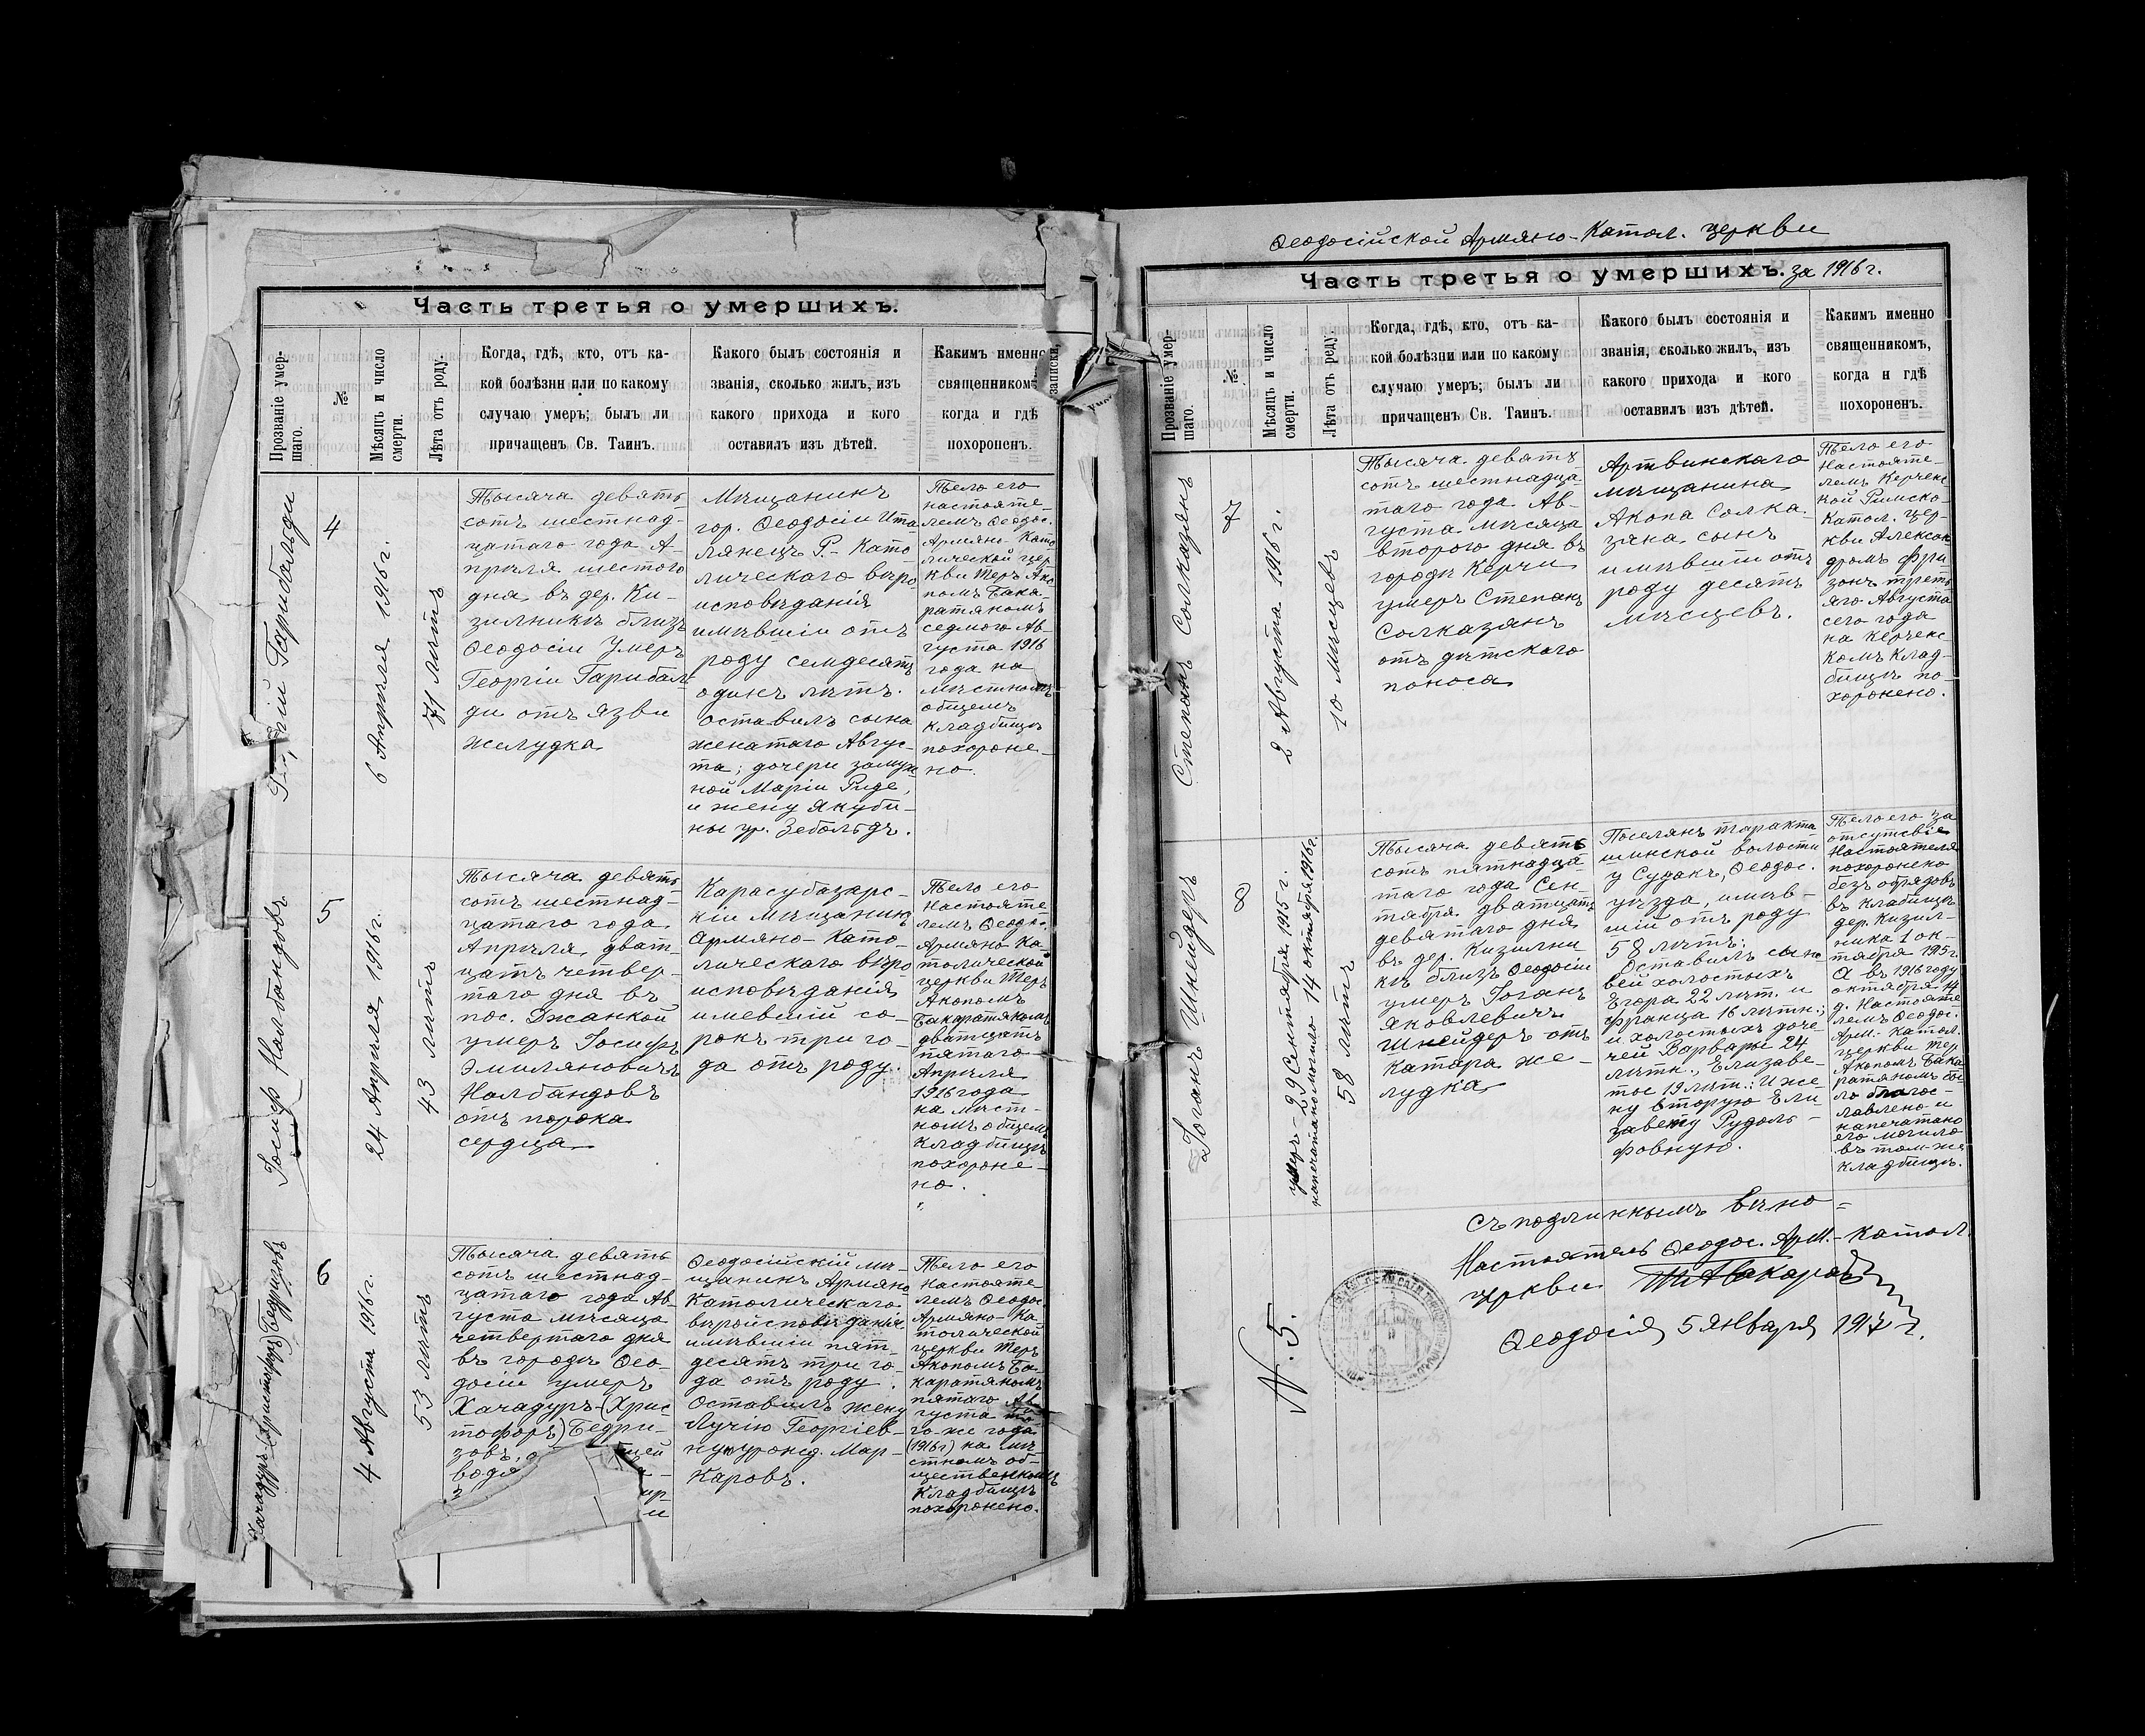 Часть третья о умершихъ.
Прозваніе умер-
шаго.
№
Мѣсяцъ и число
смерти.
Лѣта отъ роду.
Когда, гдѣ, кто, отъ ка-
кой болѣзни или по какому
случаю умеръ; былъ ли
причащенъ Св. Таинъ.
Какого былъ состоянія и
званія, сколько жилъ, изъ
какого прихода и кого
оставилъ изъ дѣтей.
Какимъ именно
священникомъ
когда и гдѣ
похороненъ.
записки,
Гарибальди
4
6 Апрѣля 1916 г.
71 лѣтъ
Тысяча девять
сотъ шестнад-
цатаго года А-
прѣля шестого
дня въ дер. Ки-
зилникъ близъ
Ѳеодосіи Умеръ
Георгіи Гарибал-
ди отъ язви
желудка
Мѣщанинъ
гор. Ѳеодосіи Ита
лянецъ Р.-Като
лическаго вѣро
исповѣданія
имѣвшіи отъ
роду семдесятъ
одинъ лѣтъ.
Оставилъ сына
женатаго Авгус-
та; дочери замуж
ной Маріи Риде,
и жену Якуби-
ны ур. Зебольдъ.
Тѣло его
настояте-
лемъ Ѳеодос.
Армяно-Като
лической цер
кви Теръ Ако
помъ Бака-
ратяномъ
седмого Ав-
густа 1916
года на
мѣстномъ
общемъ
кладбищѣ
похороне-
но.
Іосиф Налбандовъ
5
24 Апрѣля 1916 г.
43 лѣтъ
Тысяча девять
сотъ шестнад-
цатаго года
Апрѣля, дват-
цать четвер-
таго дня въ
пос. Джанкой
умеръ Іосифъ
Эмиляновичъ
Налбандовъ
отъ порока
сердца
Карасубазарс-
кіи Мѣщанинъ
Армяно-Като-
лическаго вѣро
исповѣданія
имевшій со-
рокъ три го-
да отъ роду.
Тѣло его
Настояте
лемъ Ѳеодо.
Армяно-Ка-
толической
церкви Теръ
Акопомъ
Бакаратяномъ
дватцать
пятаго
Апрѣля
1916 года
на мѣст-
номъ общемъ
кладбищѣ
похороне-
но.
Хачадуръ (Христофоръ) Бедризовъ
6
4 Августа 1916 г.
53 лѣтъ
Тысяча девять
сотъ шестнад-
цатаго года Ав-
густа мѣсяца
четвертаго дня
въ городѣ Ѳео-
досіи умеръ
Хачадуръ-(Хрис
тофоръ) Бедри-
зовъ,
Ѳеодосійскій мѣ-
щанинъ Армяно
Католическаго
вѣроисповѣданія
имѣвшіи пят-
десятъ три го-
да отъ роду.
Оставилъ жену
Лучію Георгіев-
ну урожд. Мар-
каровъ.
Тѣло его
Настояте-
лемъ Ѳеодос.
Армяно-Ка-
толической
церкви Теръ
Акопомъ Ба-
каратяномъ
пятаго Ав-
густа то-
го-же года
(1916 г) на мѣ-
стномъ об-
щественномъ
Кладбищѣ
похоронено.
Ѳеодосійской Армяно-Катол. церкви
Часть третья о умершихъ. за 1916 г.
Прозваніе умер-
шаго.
№
Мѣсяцъ и число
смерти.
Лѣта отъ роду.
Когда, гдѣ, кто, отъ ка-
кой болѣзни или по какому
случаю умеръ; былъ ли
причащенъ Св. Таинъ.
Какого былъ состоянія и
званія, сколько жилъ, изъ
какого прихода и кого
оставилъ изъ дѣтей.
Какимъ именно
священникомъ,
когда и гдѣ
похороненъ.
Степанъ Солказянъ
7
2 Августа 1916 г.
10 мѣсяцевъ
Тысяча девять
сотъ шестнадца-
таго года Ав-
густа мѣсяца
второго дня въ
городѣ Керчи
умеръ Степанъ
Солказянъ
отъ дѣтскаго
поноса
Артвинскаго
мѣщанина
Акопа Солка-
зяна сынъ
имѣвшіи отъ
роду десять
мѣсяцевъ.
Тѣло его
Настояте-
лемъ Керченс
кой Римско-
Катол. цер-
кви Алексан
дромъ Фри
зонъ треть
яго Августа
сего года
на Керченс
комъ Клад-
бищѣ по-
хоронено.
Іоганъ Шнейдеръ
8
умеръ-29 Сентября 1915 г.
напечатано могило 14 октября 1916 г.
58 лѣтъ
Тысяча девять
сотъ пятнадца-
таго года Сен-
тября дватцать
девятаго дня
въ дер. Кизилни
къ близъ Ѳеодосіи
умеръ Іоганъ
Яковлевичъ
Шнейдеръ отъ
Катара же-
лудка
Поселянъ таракта
шинской волости
у Судакъ, Ѳеодос.
уѣзда, имѣв-
шій отъ роду
58 лѣтъ:
Оставилъ сыно
вей холостыхъ
Егора 22 лѣт. и
Франца 16 лѣтн.;
и холостыхъ доче-
чей Варвары 24
лѣтн., Елизаве-
тое 19 лѣт.: И же-
ну вторую Ели
завету Рудоль-
фовную.
Тѣло его за
отсутсвіе
Настоятеля
похоронено
безъ обрядовъ
въ кладбищѣ
дер. Кизил-
ника 1 ок-
тября 1915 г.
А въ 1916 году
октября 14
д. Настояте
лемъ Ѳеодос.
Арм. Катол.
церкви Тер
Акопомъ Бака
ратяномъ бы
ло благос-
лавлено и
напечатано
его могило
въ томъ-же
кладбищѣ.
Съ подлиннымъ вѣрно=
Настоятель Ѳеодос. Арм.-катол.
церкви
Ѳеодосія 5 января 1917 г.
N. 5.